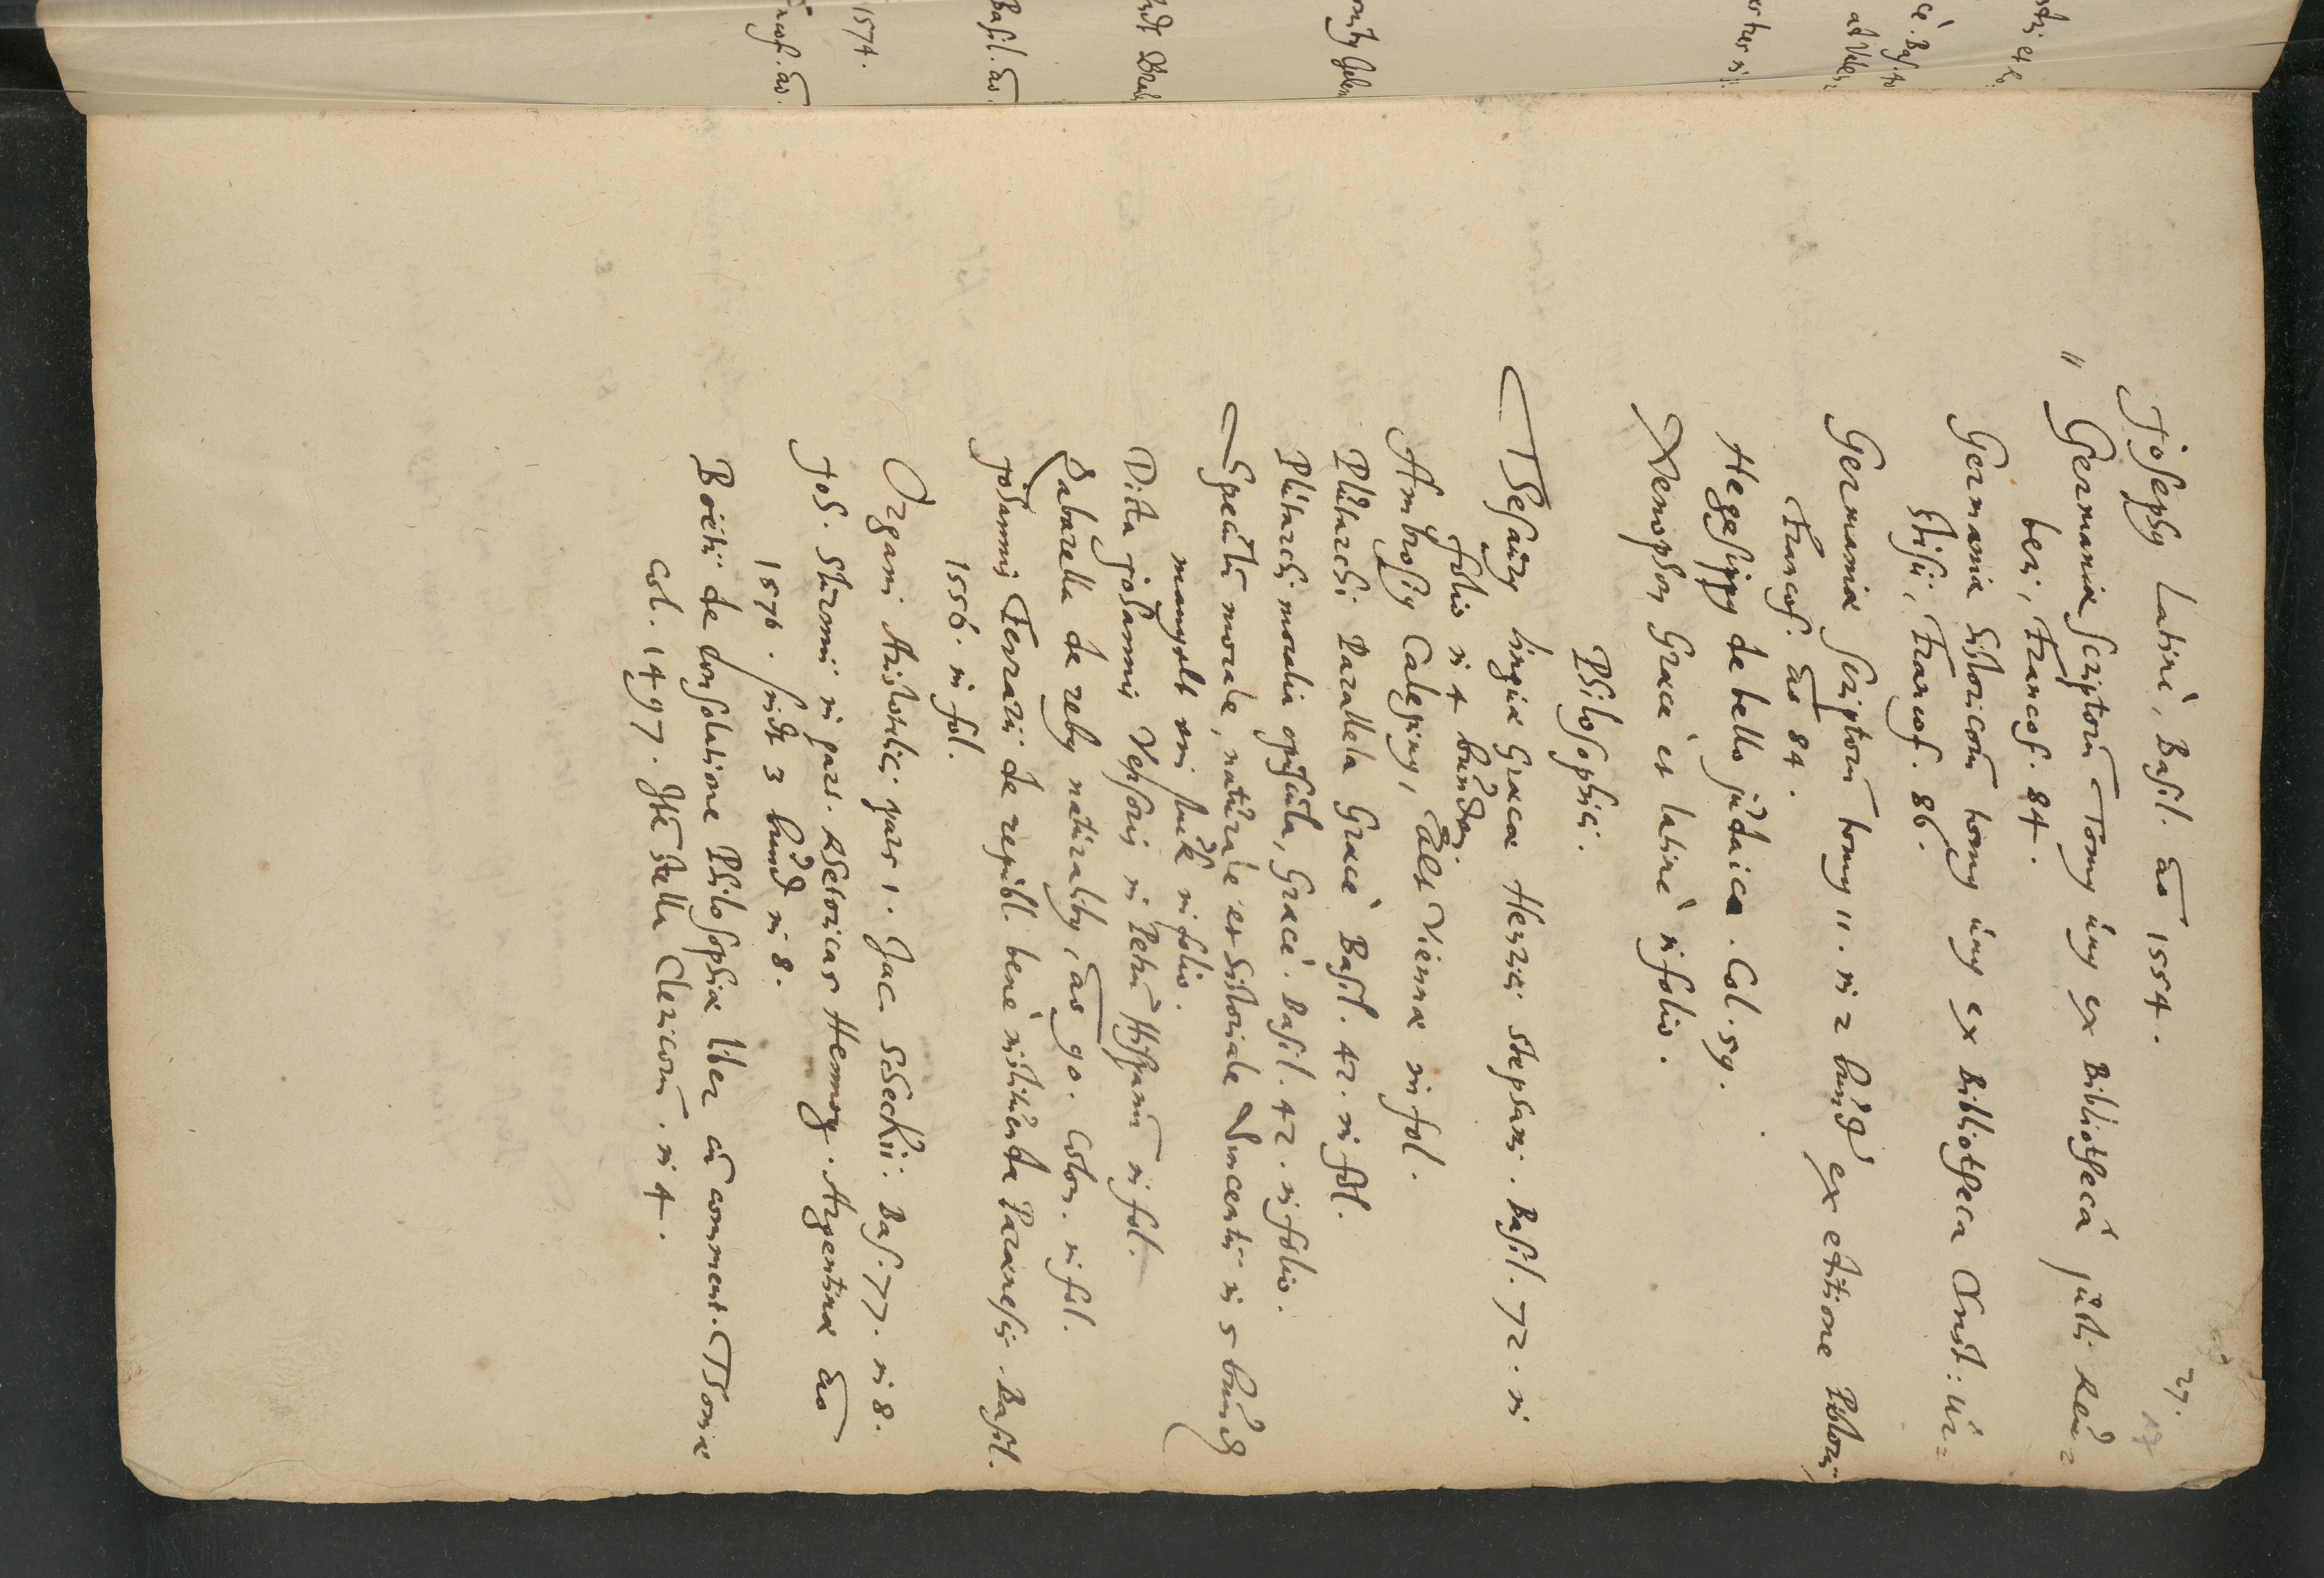 27.
17
Josephus Latinè, Basil. ao 1554.
" Germaniæ Scriptorū Tomus unus ex Bibliothecâ justi Reu=
beri, Francof. 84.
Germaniæ historicorū tomus unus ex Bibliotheca Christ: Ur=
stisii, Francof. 86.
Germaniæ Scriptorū tomus 11. in 2 bund ex editione Pistorii,
Francof. ao 84.
Hegesippus de bello judaica. Col. 59.
Xenophon Græcè et latinè in folio.
Philosophici.
Thesaurus linguæ Græcæ Henrici Stephani. Basil. 72. in
folio in 4 bunden.
Ambrosius Calepinus, alt Viennæ in fol.
Plutarchi Parallela Græcè Basil. 42. in fol.
Plutarchi moralia opuscula, Græcè. Basil. 42. in folio.
Speculū morale, naturale et historiale Vincentii in 5 bund
mangelt ein stuck in folio.
Dicta johannis Versoris in Petrū Hispanū in fol.
Zabarella de rebus naturalibus, ao 90. Colon. in fol.
johannis Ferrarii de republ. benè instituenda Parænesis. Basil.
1556. in fol.
Organi Aristotelici pars 1. Jac. Scheckii. Bas. 77. in 8.
Joh. Sturmii in part. rhetoricas Hermog. Argentinæ ao
1576. sindt 3 bund in 8.
Boëtii de Consolatione Philosophiæ liber cū comment. Thomæ
Col. 1497. Itē stella Clericorū. in 4.
1574.
Basil. ao.
Francof. ao.